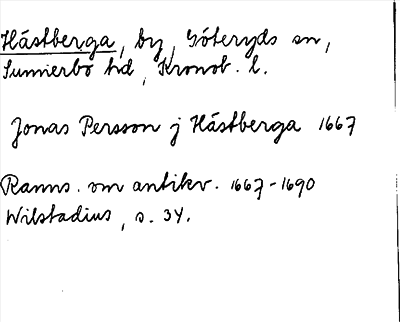 Hästberga, by, Göteryds sn,
Sunnerbo hd, Kronob. l.
Jonas Persson j Hästberga 1667
Ranns. om antikv. 1667-1690
Wilstadius, s. 34.